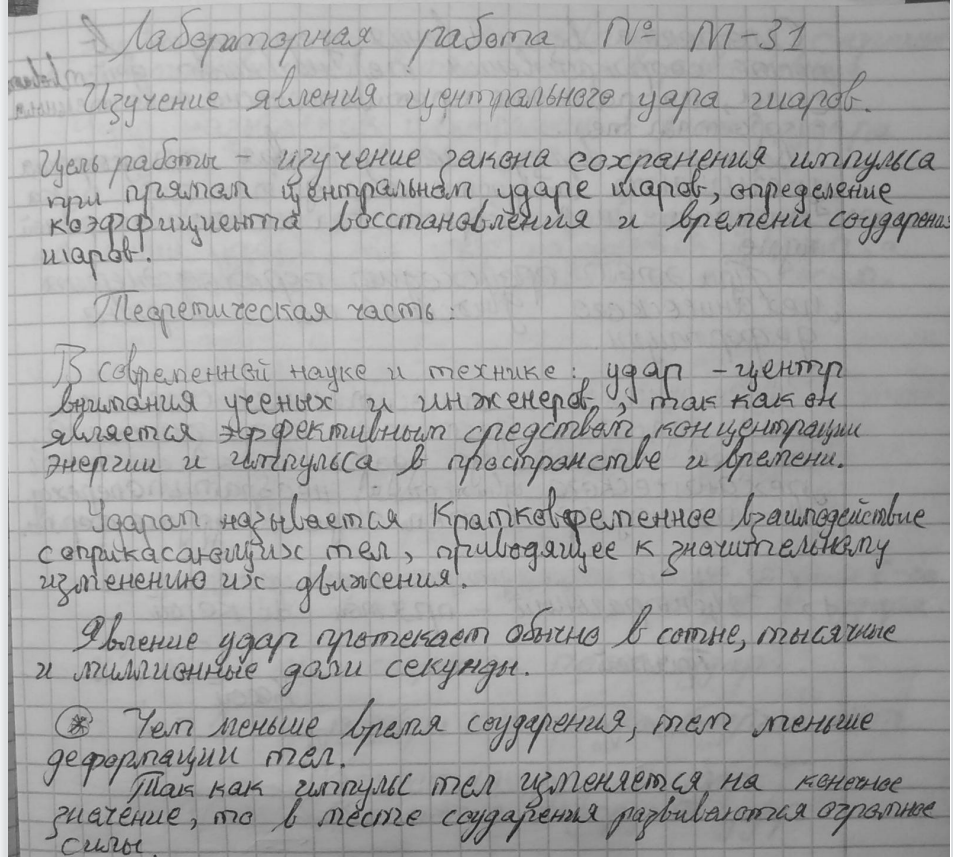 Лабораторная работа № М-31
Изучение явления центрального удара шаров.
Цель работы - изучение закона сохранения импульса
при прямом центральном ударе шаров, определение
коэффициента восстановления и времени соударения
шаров.
Теоретическая часть:
В современной науке и технике: удар - центр
внимания ученых и инженеров, так как он
является эффективным средством концентрации
энергии и импульса в пространстве и времени.
Ударом называется кратковременное взаимодействие
соприкасающихся тел, приводящее к значительному
изменению их движения.
Явление удар протекает обычно в сотне, тысячные
и миллионные доли секунды.
* Чем меньше время соударения, тем меньше
деформации тел.
Так как импульс тел изменяется на конечное
значение, то в месте соударения развиваются огромные
силы.